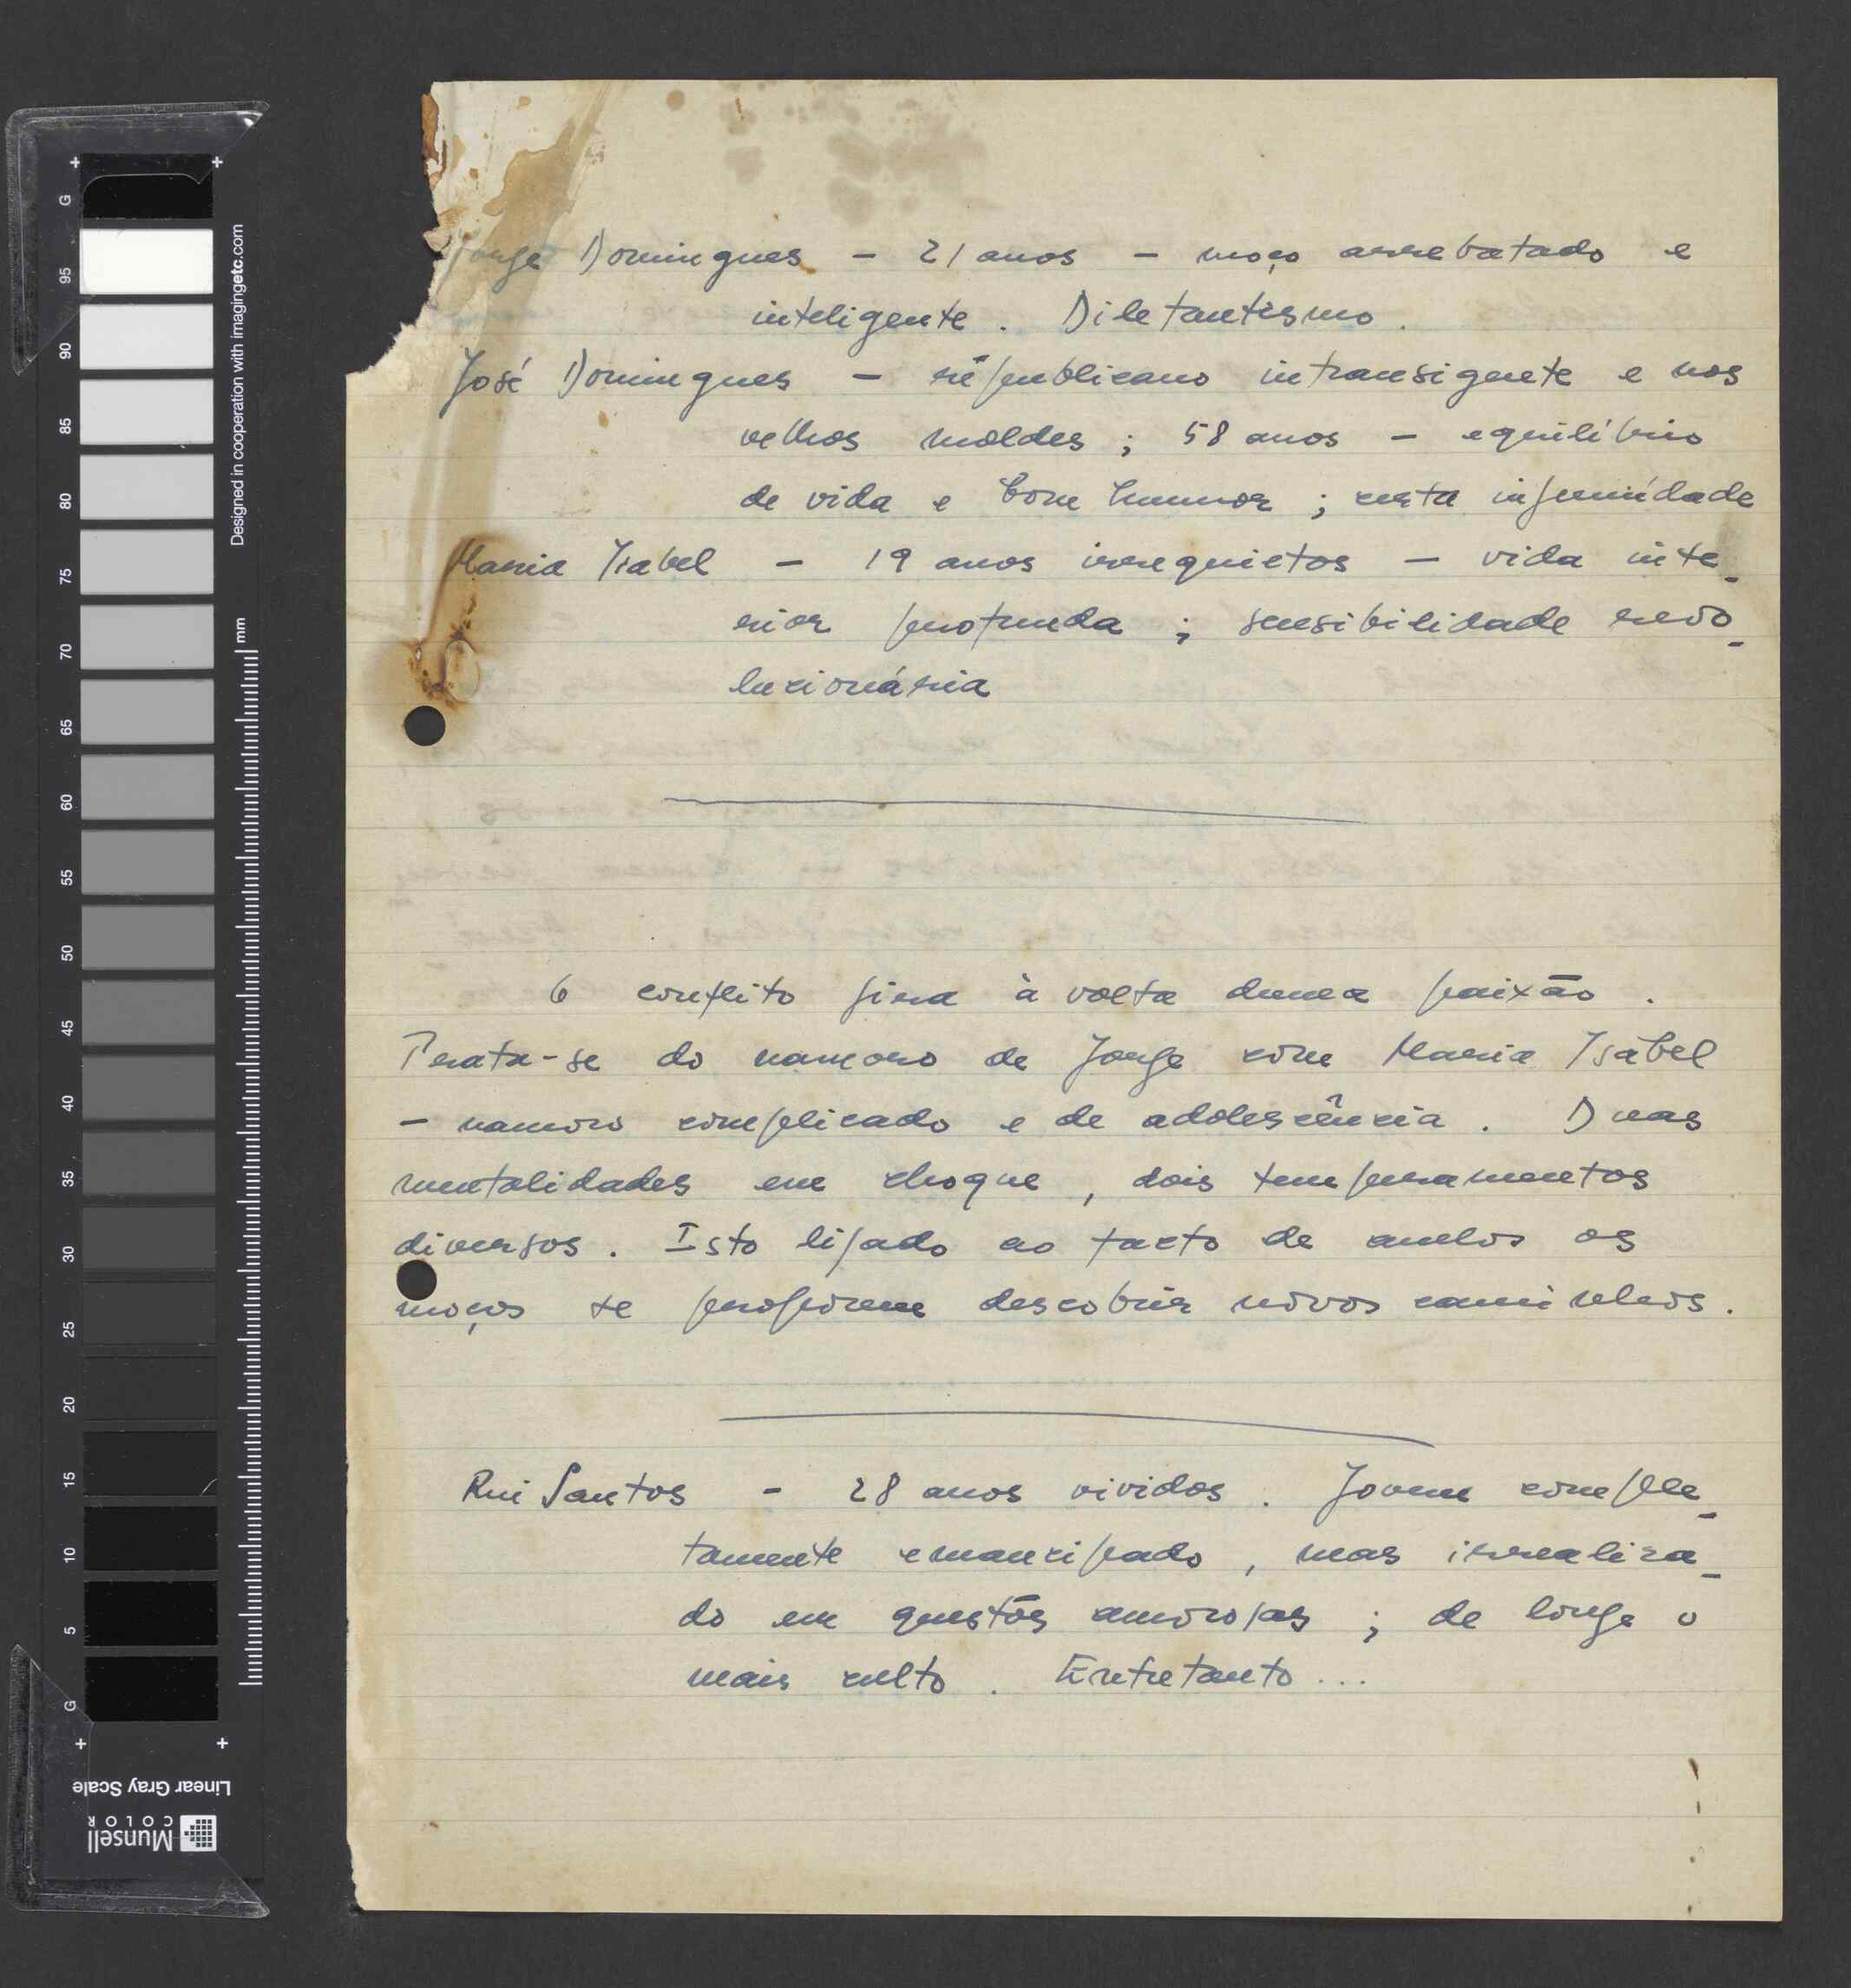 Jorge Domingues - 21 anos - moço arrebatado e
inteligente. Diletantismo.
José Domingues - républicano intransigente e nos
velhos moldes; 58 anos - equilíbrio
de vida e bom humor; certa ingenuidade
Maria Isabel - 19 anos irrequietos - vida inte-
rior profunda; sensibilidade revo-
lucionária
O conflito gira à volta duma paixão.
Trata-se do namoro de Jorge com Maria Isabel
- namoro complicado e de adolescência. Duas
mentalidades em choque, dois temperamentos
diversos. Isto ligado ao facto de ambos os
moços se proporem descobrir novos caminhos.
Rui Santos - 28 anos vividos. Jovem comple-
tamente emancipado, mas irrealiza-
do em questões amorosas; de longe o
mais culto. Entretanto...
G 95 90 85 80 75 70 65 60 55 50 45 40 35 30 25 20 15 10 5 G
Designed in cooperation with imagingetc.com
mm
Linear Gray Scale
Munsell
COLOR